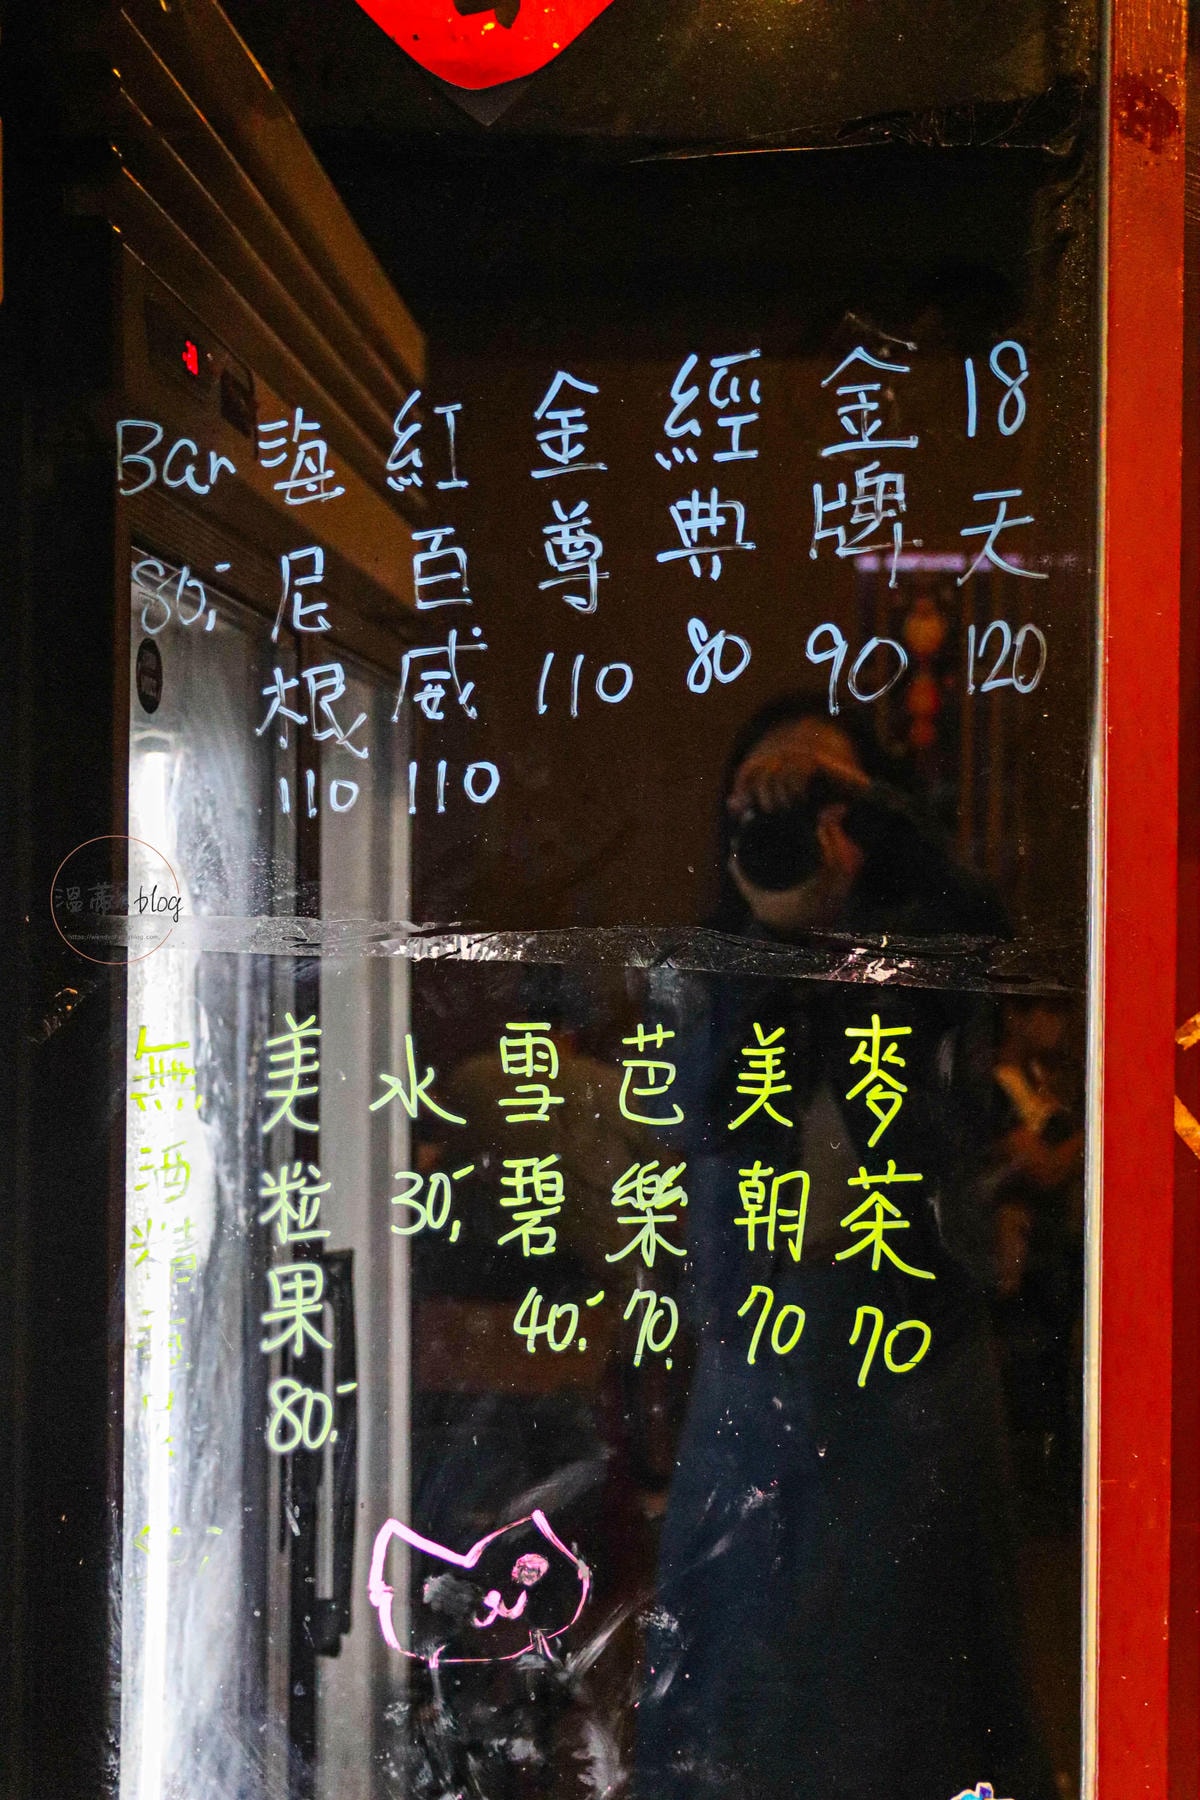 18天 120
金牌 90
經典 80
金尊 110
紅百威 110
海尼根 110
Bar 80,
麥茶 70
美朝 70
芭樂 70.
雪碧 40.
水 30,
美粒果 80.
無酒精
blog